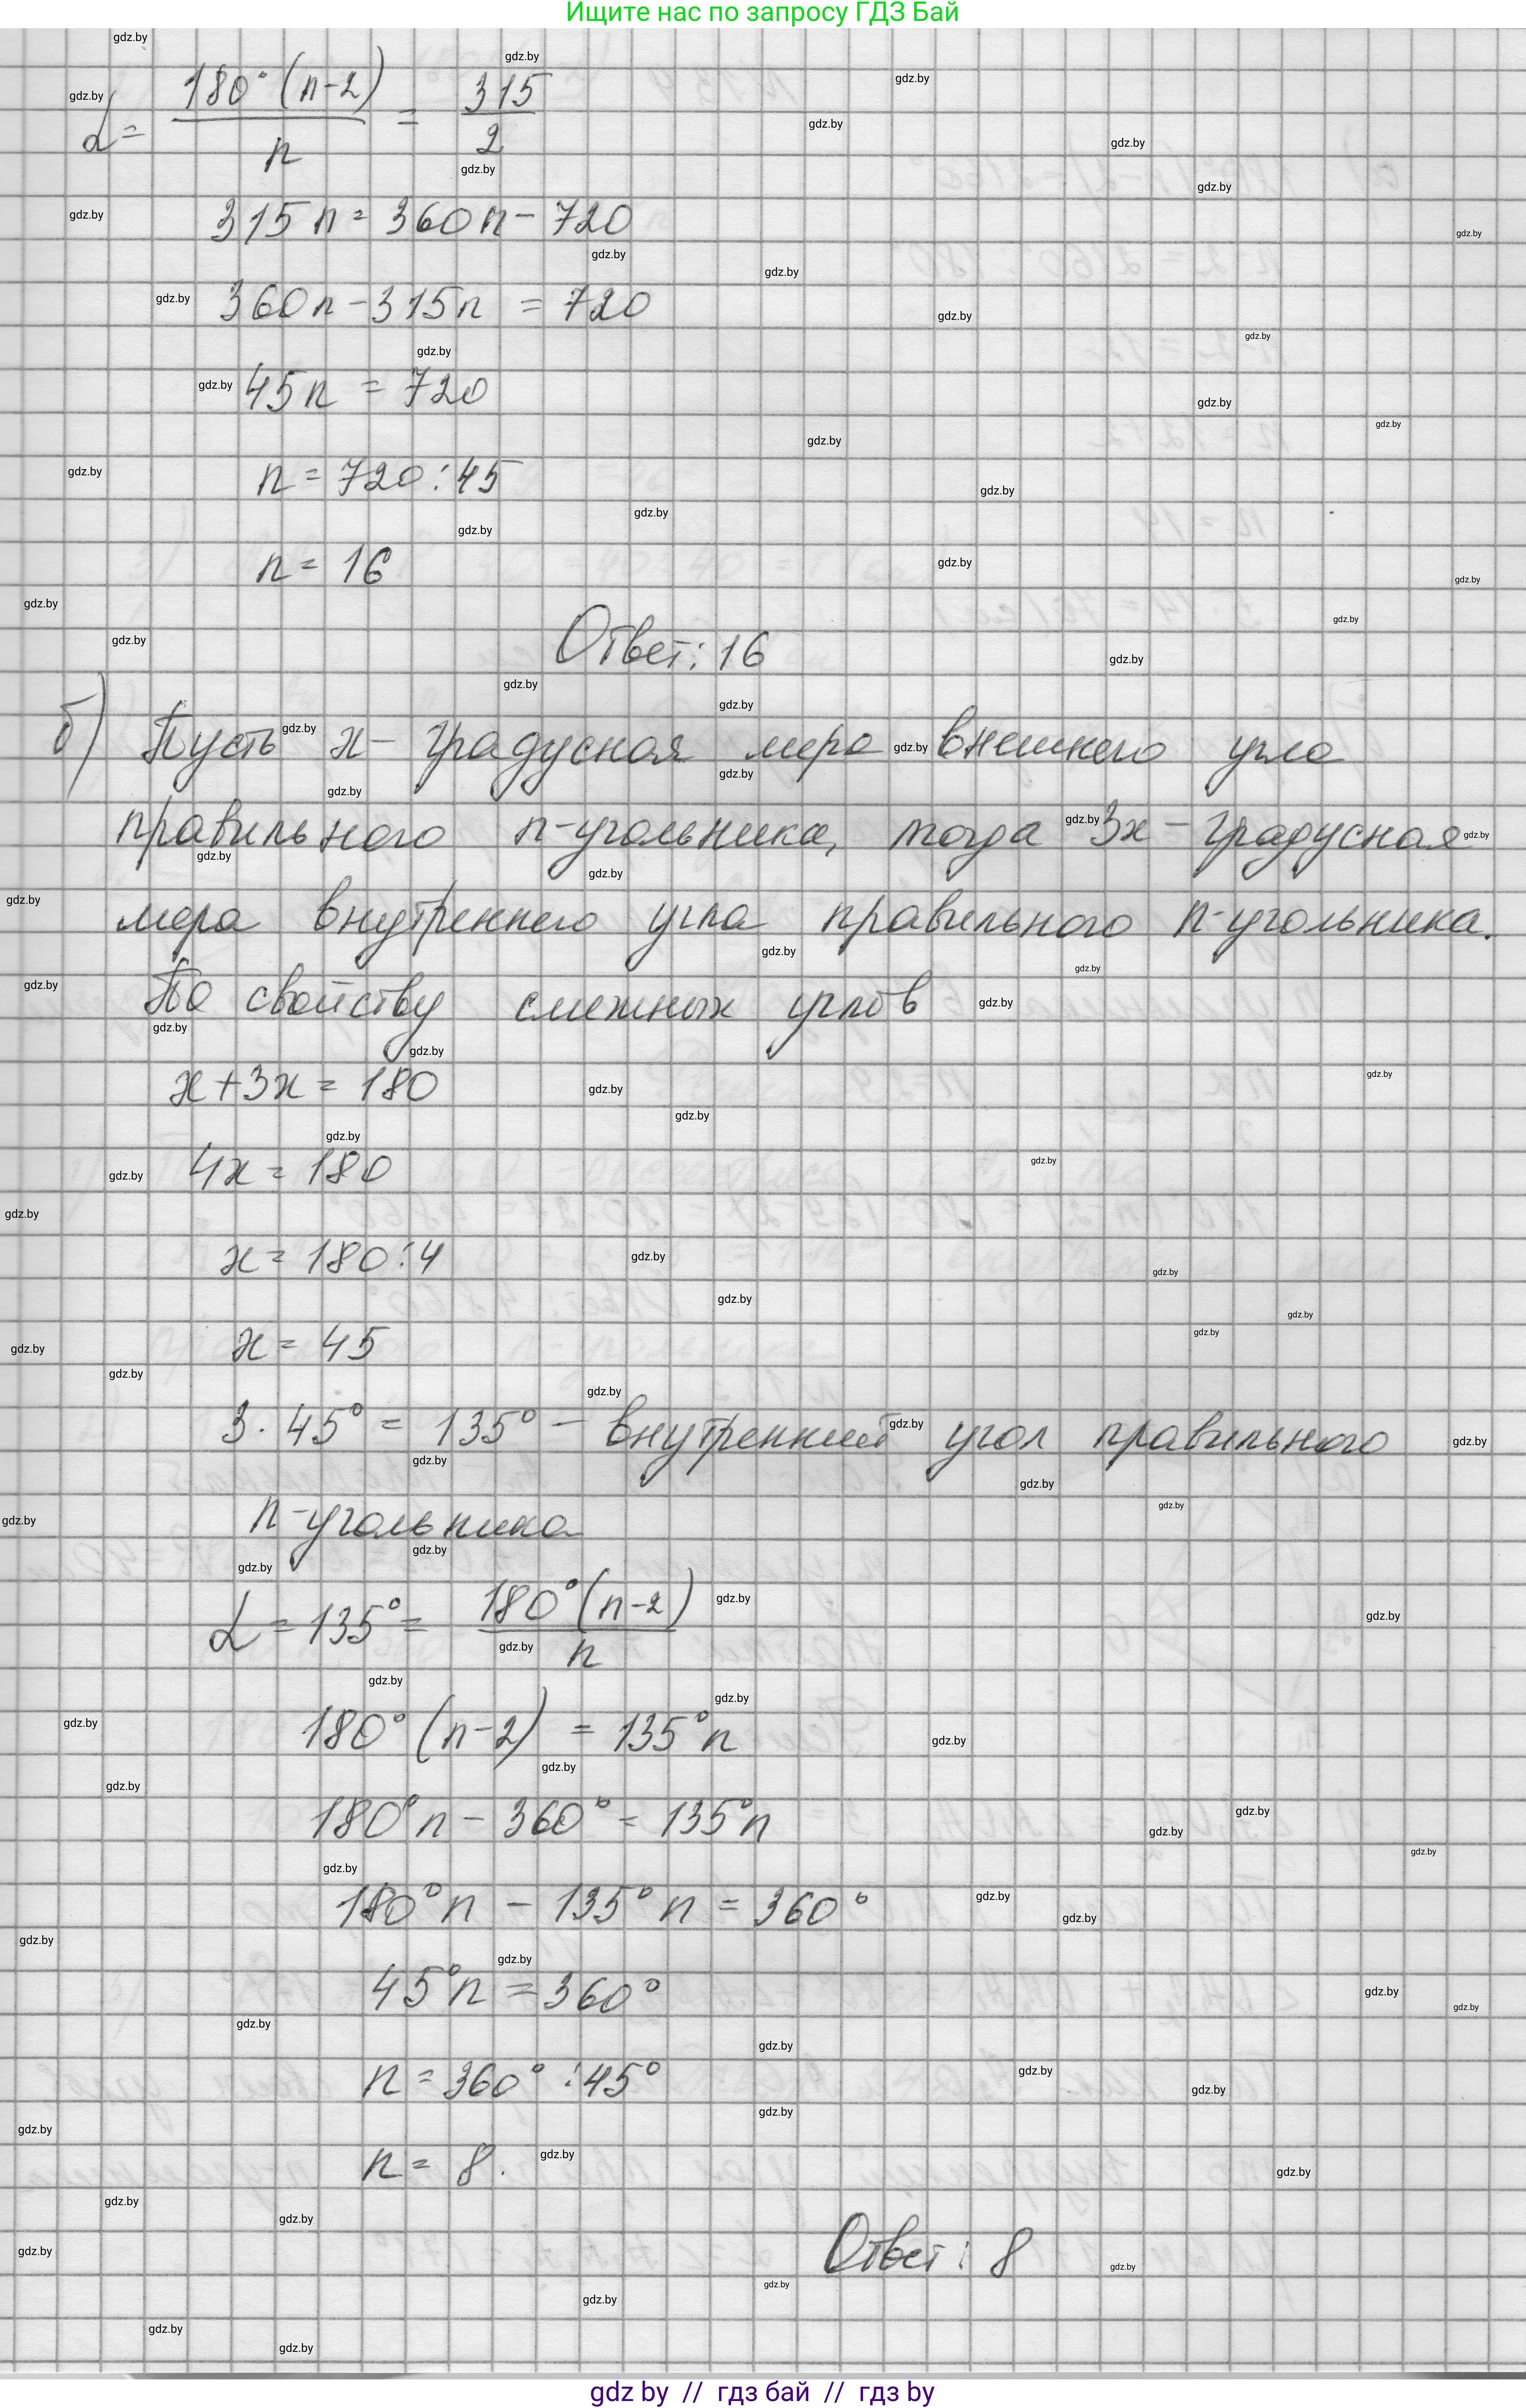 Ищите нас по запросу ГДЗ Бай
α = 180°(n-2)/n = 315/2
315n = 360n - 720
360n - 315n = 720
45n = 720
n = 720:45
n = 16
Ответ: 16
б) Пусть x - градусная мера внешнего угла
правильного n-угольника, тогда 3x - градусная
мера внутреннего угла правильного n-угольника.
По свойству смежных углов
x + 3x = 180
4x = 180
x = 180:4
x = 45
3 · 45° = 135° - внутренний угол правильного
n-угольника
α = 135° = 180°(n-2)/n
180°(n-2) = 135°n
180°n - 360° = 135°n
180°n - 135°n = 360°
45°n = 360°
n = 360° : 45°
n = 8.
Ответ: 8
gdz by // гдз бай // гдз by